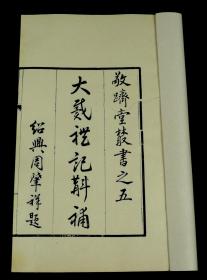 敬躋堂叢書之五
大戴禮記斠補
紹興周肇祥題